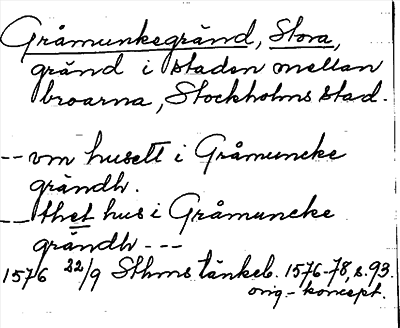 Gråmunkegränd, Stora,
gränd i staden mellan
broarna, Stockholms stad.
-- vm husett i Gråmuncke
grändh.
__ thet hus i Gråmuncke
grändh ---
1576 22/9 Sthms tänkeb. 1576-78, s. 93.
orig.-koncept.